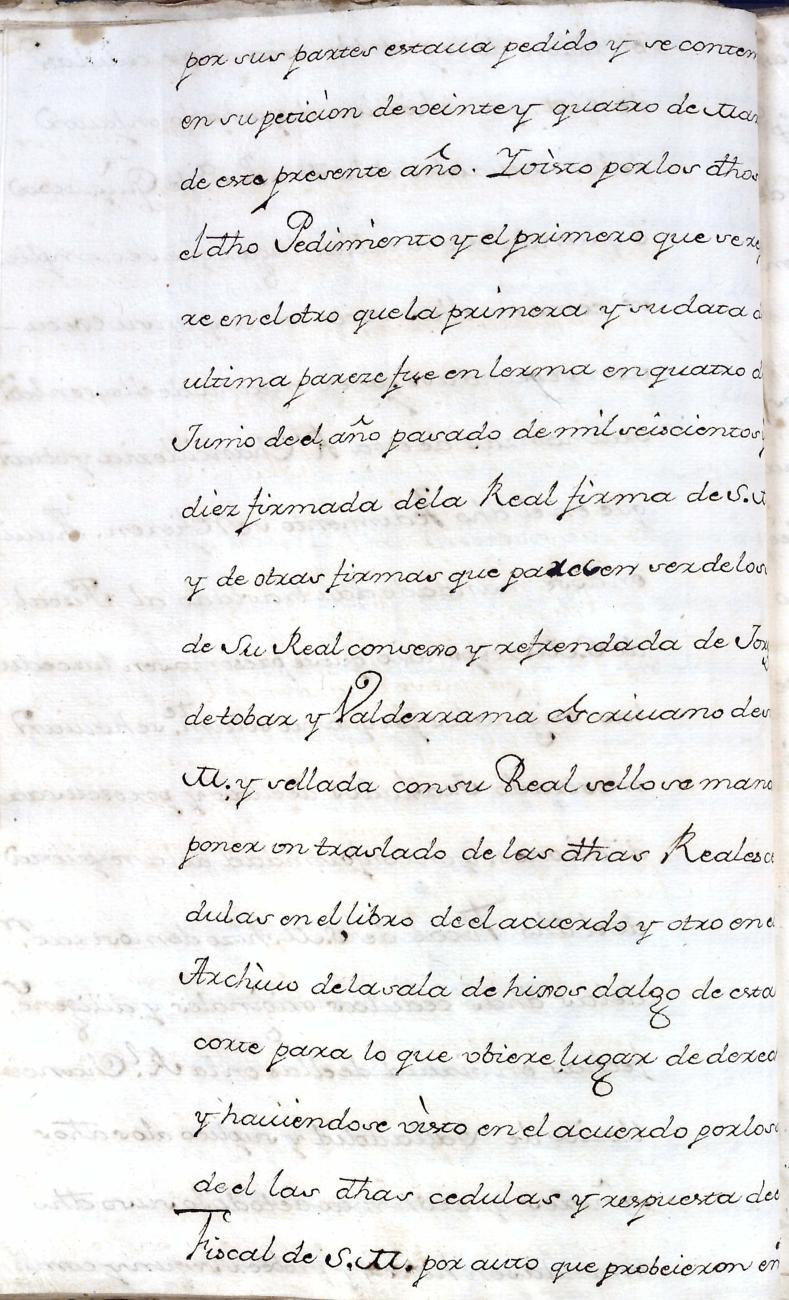 por sus partes estaua pedido y se conten
en su peticion de veinte y quatro de Mar
de este presente año. Y visto por los dhos
el dho Pedimiento y el primero que se re
re en el otro que la primera y su data
ultima pareze fue en lerma en quatro d
Junio de el año pasado de mil seiscientos
diez firmada dela Real firma de S. M
y de otras firmas que parecen ser de los
de Su Real consexo y refrendada de Jor
de tobar y Valderrama Escriuano de s
M. y sellada con su Real sello se man
poner vn traslado de las dhas Reales ce
dulas en el libro de el acuerdo y otro en e
Archiuo dela sala de hixos dalgo de esta
corte para lo que vbiere lugar de derec
y hauiendose visto en el acuerdo por los
de el las dhas cedulas y respuesta de
Fiscal de S. M. por auto que probeieron en